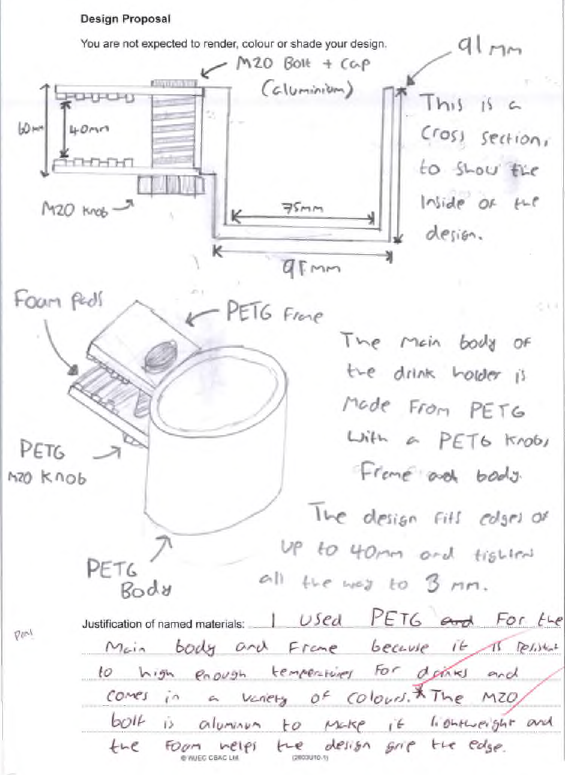 Design Proposal
You are not expected to render, colour or shade your design.
91 mm
M20 Bolt + Cap
(aluminium)
This is a
cross section,
to show the
inside of the
design.
60mm
40mm
M20 Knob
75mm
91mm
Foam Pads
PETG Frame
The main body of
the drink holder is
made from PETG
with a PETG Knob,
Frame and body.
PETG
M20 Knob
The design fits edges of
up to 40mm and tightens
all the way to 3 mm.
PETG
Body
Justification of named materials: I used PETG and For the
Main body and Frame because it is resistant
to high enough temperatures for drinks and
comes in a variety of colours.* The M20
bolt is aluminum to make it lightweight and
the foam helps the design grip the edge.
© WJEC CBAC Ltd.
(2603U10-1)